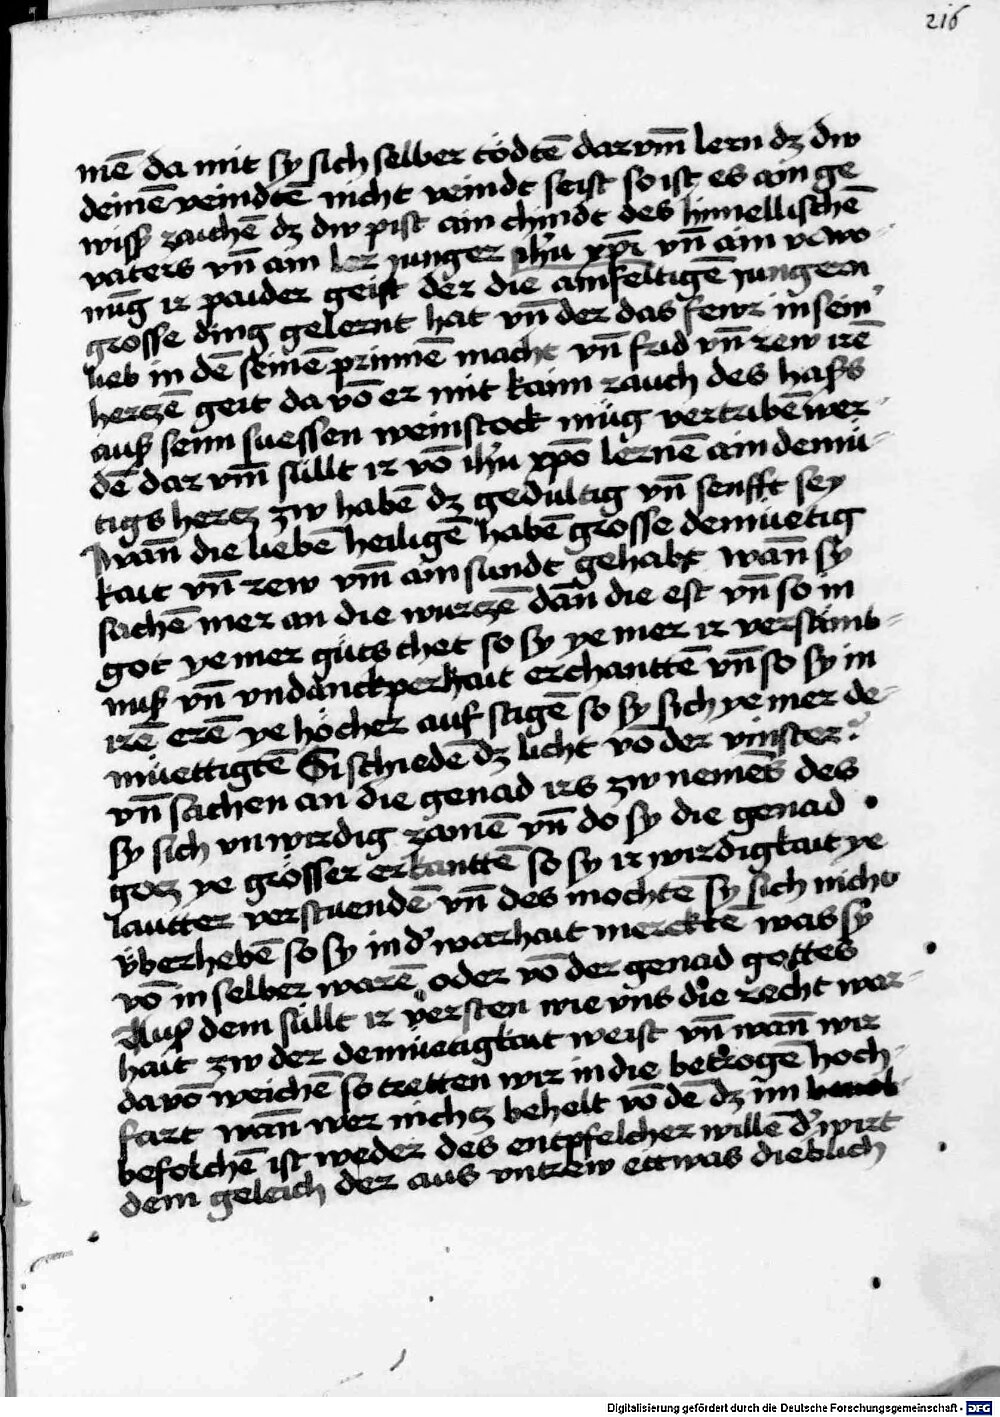 216
mē da mit sy sich selber tödtē dar vm̄ lern dz dw
deinē veindtē nicht veindt seist so ist es ain ge
wiss zaichē dz dw pist ain chindt des himellischē
vaters vn̄ ain ler junger ihu xpi vn̄ ain vewo-
nūg ir paider geist der die ainfeltigē jungern
grosse ding gelernt hat vn̄ der das fewr in sein'
lieb in dē seinē prinnē macht vn̄ frid vn̄ rew irē
hertzē geit da vō er mit kaim rauch des hass
auß seim suessen weinstock müg vertribē wer-
dē dar vm̄ süllt ir vō ihu xpo lernē ain demü-
tigs hertz zw habē dz gedultig vn̄ senfft sey
wan̄ die liebē heiligē habē grosse demüetig
kait vn̄ rew vm̄ ain sundt gehabt wan̄ sy
sachē mer an die wurczē dan̄ die est vn̄ so in
got ye mer güts thet so sy ye mer ir verstänt-
nuß vn̄ vndanckperkait erchanttē vn̄ so sy in
irē erē ye höcher auf stigē so sy sich ye mer de-
müettigtē Si schiedē dz licht vō der vinster
vn̄ sachen an die genad irs zw nemēs des
sy sich vnwirdig zamē vn̄ do sy die genad
gotz ye grösser erkanttē so sy ir wirdigkait ye
lautter verstuendē vn̄ des mochtē sy sich nicht
überhebē so sy in d' warhait mercktē was sy
vō in selber warē oder vō der genad gottes
Auß dem süllt ir versten wie vns die recht war-
hait zw der demüetigkait weist vn̄ wan̄ wir
davō weichē so tretten wir in die betrogē hoch-
fart wan̄ wer nichtz behelt vō dē dz im
befolchē ist weder des entpfelcher willē d' wirt
dem geleich der aus vntrew ettwas dieblich
Digitalisierung gefördert durch die Deutsche Forschungsgemeinschaft - DFG